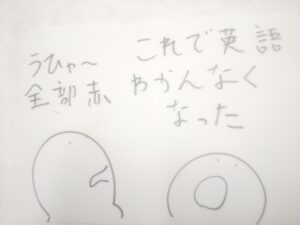 うひゃ〜
全部赤
これで英語
わかんなく
なった